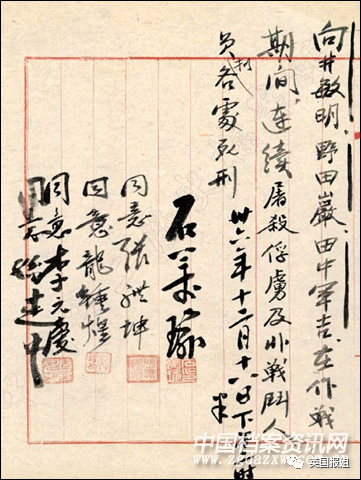 向井敏明、野田巖、田中軍吉、在作戰
期间、连续屠殺俘虜及非戰鬥人
员各處死刑
卅六年十二月十八日下午時半
石美瑜
同意張體坤
同意龍鍾煌
同意李元慶
同意建中
中国档案资讯网
www.zgdazxw.com.cn
英国报姐